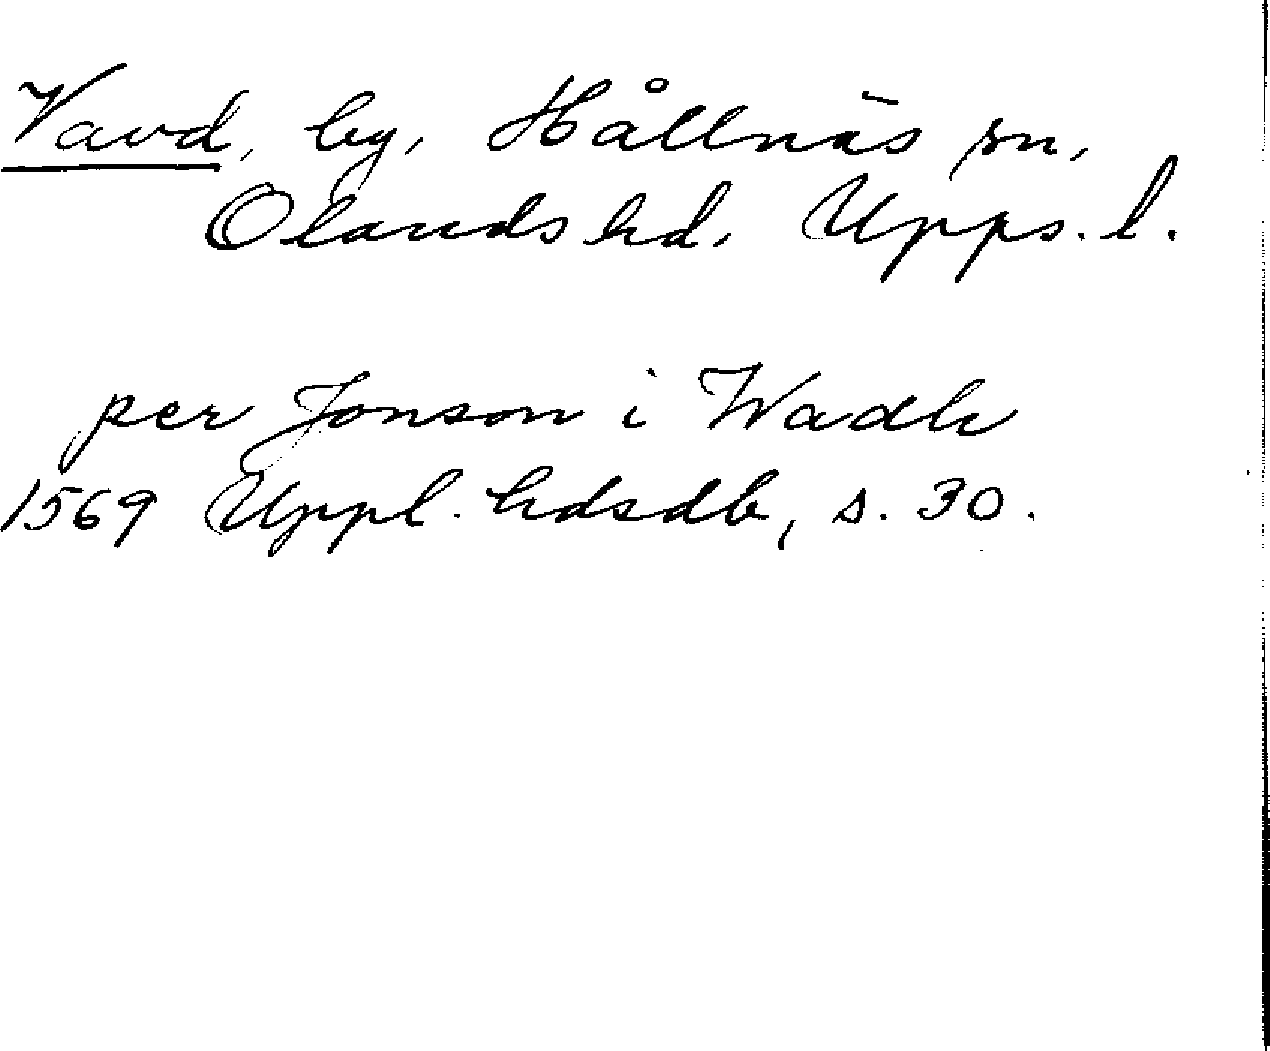 Vavd, by, Hållnäs sn,
Olands hd, Upps. l.
per Jonson i Wadh
1569 Uppl. hdsdb, s. 30.